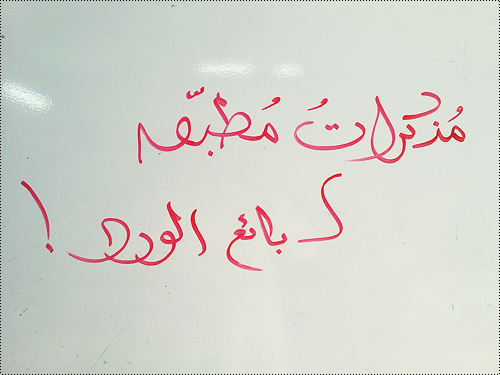 مُذكراتُ مُطبّقه
لـ بائع الورد !